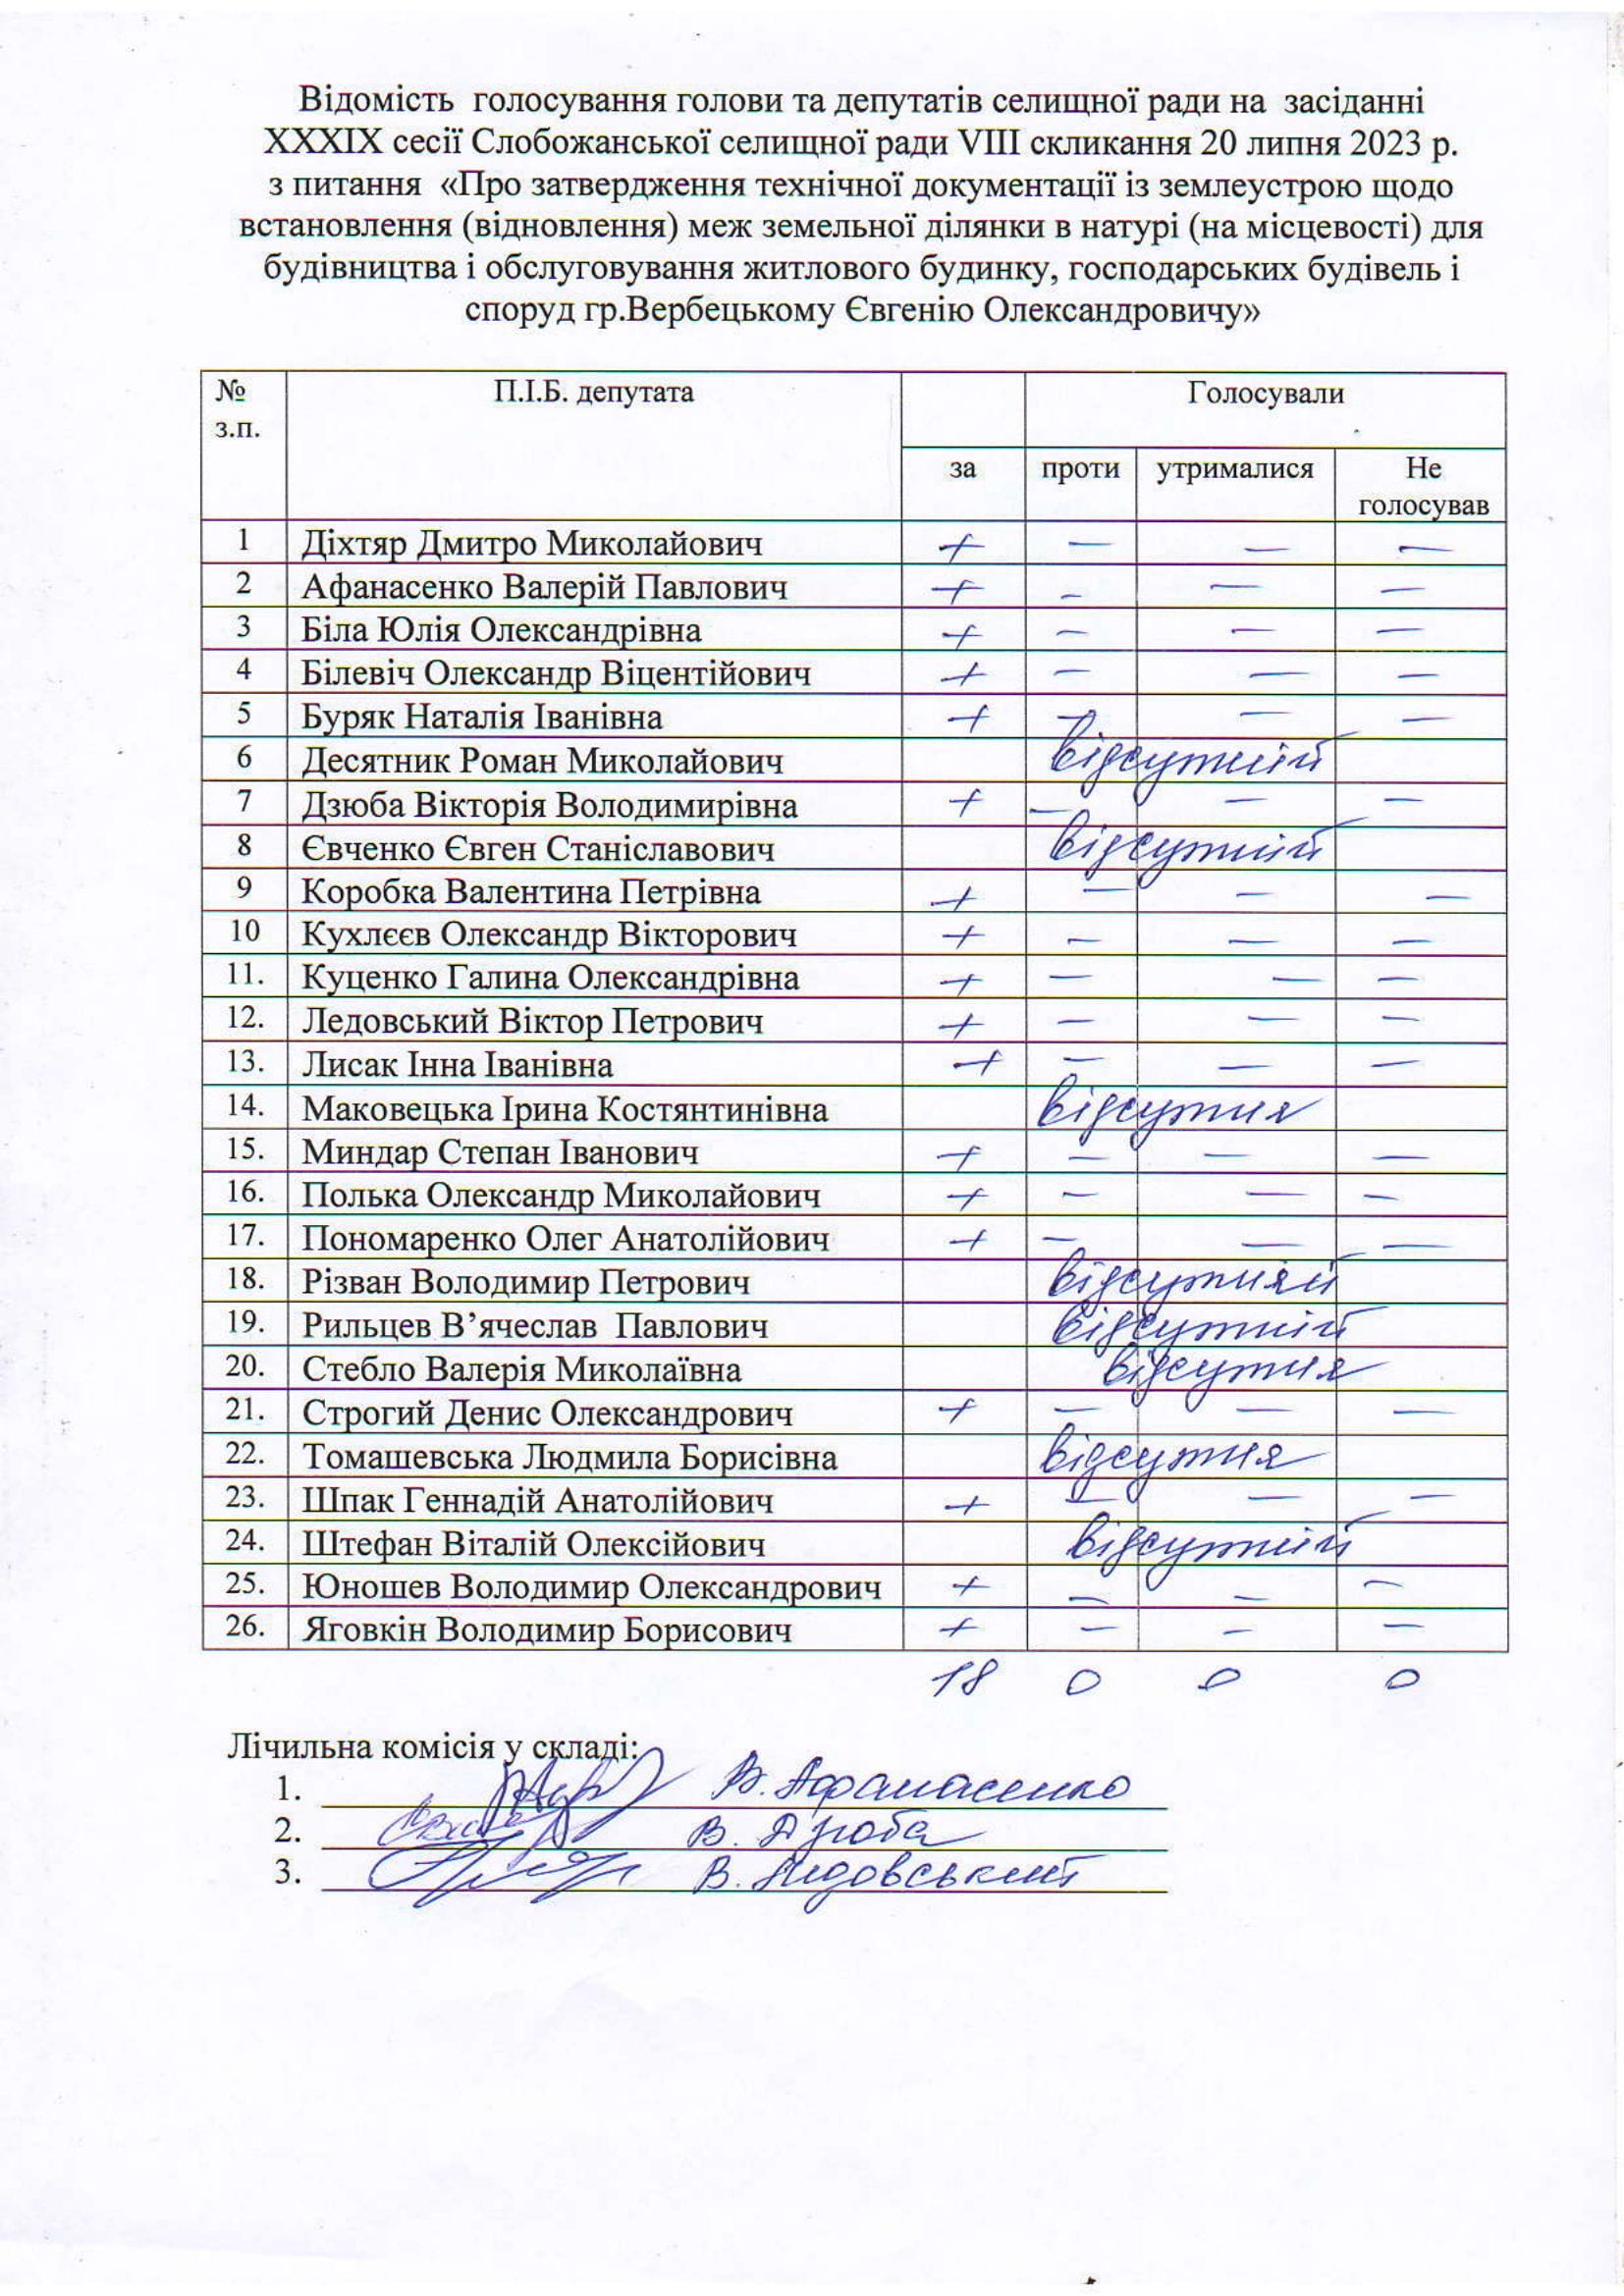 Відомість голосування голови та депутатів селищної ради на засіданні
XXXIX сесії Слобожанської селищної ради VIII скликання 20 липня 2023 р.
з питання «Про затвердження технічної документації із землеустрою щодо
встановлення (відновлення) меж земельної ділянки в натурі (на місцевості) для
будівництва і обслуговування житлового будинку, господарських будівель і
споруд гр.Вербецькому Євгенію Олександровичу»
№ з.п. П.І.Б. депутата Голосували
за проти утрималися Не голосував
1 Діхтяр Дмитро Миколайович + — — —
2 Афанасенко Валерій Павлович + — — —
3 Біла Юлія Олександрівна + — — —
4 Білевіч Олександр Віцентійович + — — —
5 Буряк Наталія Іванівна + — — —
6 Десятник Роман Миколайович відсутній
7 Дзюба Вікторія Володимирівна + — — —
8 Євченко Євген Станіславович відсутній
9 Коробка Валентина Петрівна + — — —
10 Кухлєєв Олександр Вікторович + — — —
11. Куценко Галина Олександрівна + — — —
12. Ледовський Віктор Петрович + — — —
13. Лисак Інна Іванівна + — — —
14. Маковецька Ірина Костянтинівна відсутня
15. Миндар Степан Іванович + — — —
16. Полька Олександр Миколайович + — — —
17. Пономаренко Олег Анатолійович + — — —
18. Різван Володимир Петрович відсутній
19. Рильцев В’ячеслав Павлович відсутній
20. Стебло Валерія Миколаївна відсутня
21. Строгий Денис Олександрович + — — —
22. Томашевська Людмила Борисівна відсутня
23. Шпак Геннадій Анатолійович + — — —
24. Штефан Віталій Олексійович відсутній
25. Юношев Володимир Олександрович + — — —
26. Яговкін Володимир Борисович + — — —
18 0 0 0
Лічильна комісія у складі:
1. В. Афанасенко
2. В. Дзюба
3. В. Ледовський